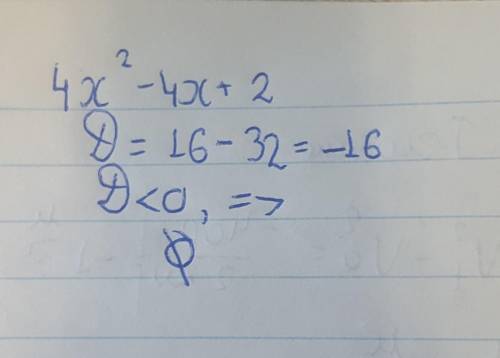 4x² - 4x + 2
D = 16 - 32 = -16
D < 0, =>
∅